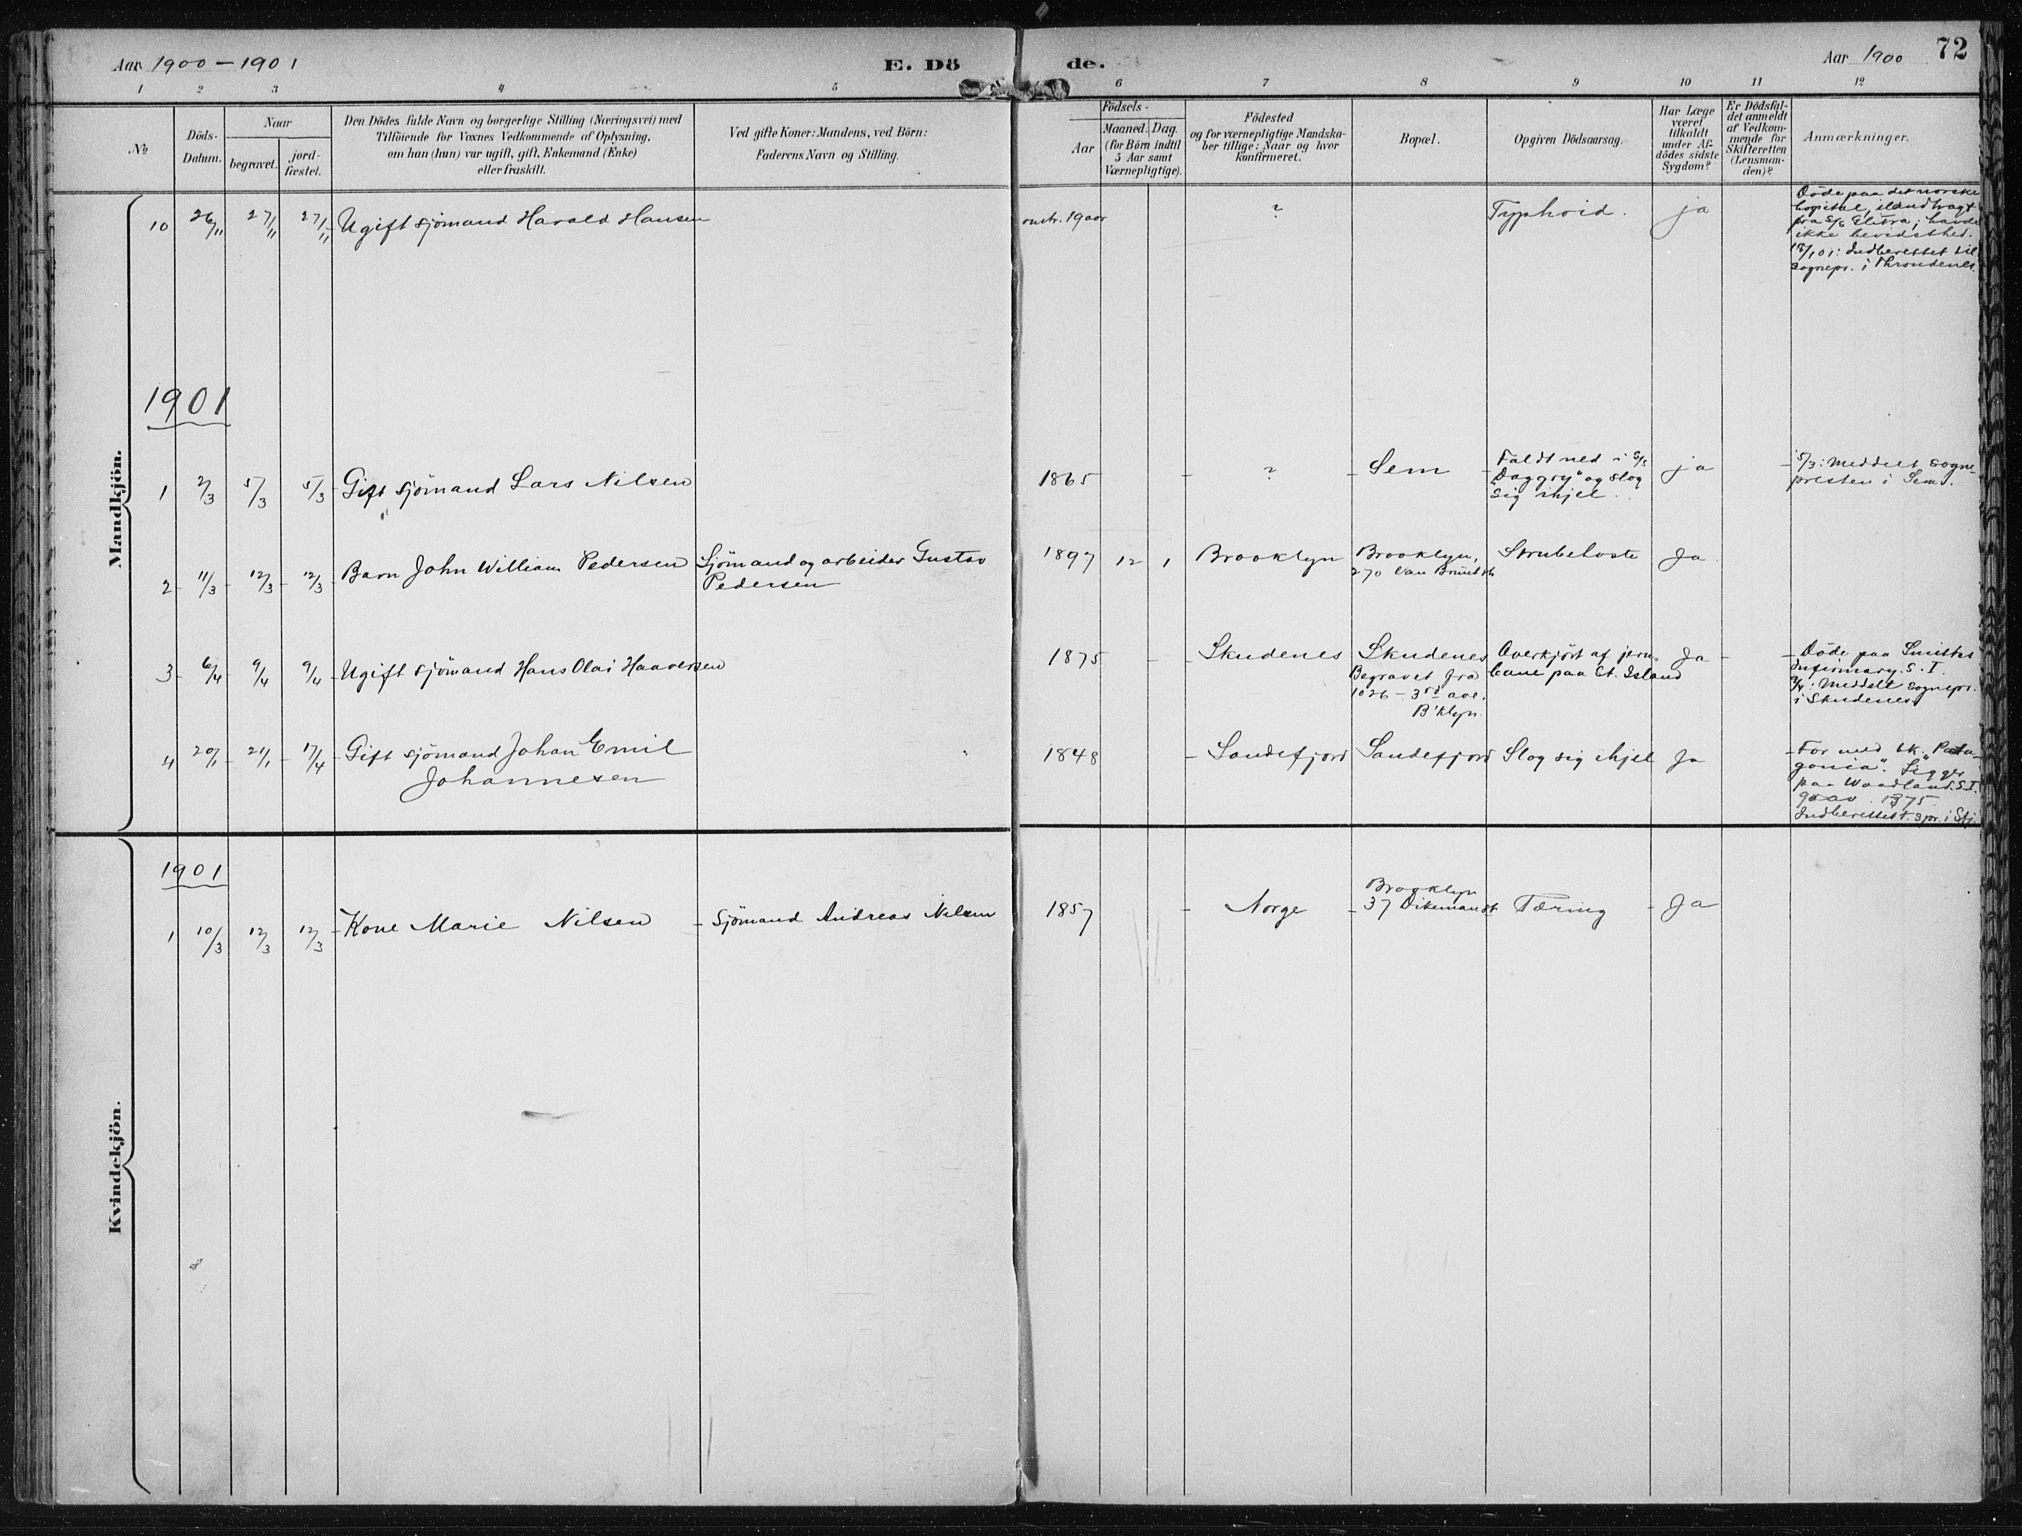 Aar 1900 – 1901
E. Döde.
Aar 1900
72
1 2 3 4 5 6 7 8 9 10 11 12
No
Döds-
Datum.
Naar
begravet.
jord-
fæstet.
Den Dödes fulde Navn og borgerlige Stilling (Næringsvei) med
Tilföiende for Voxnes Vedkommende af Oplysning,
om han (hun) var ugift, gift, Enkemand (Enke)
eller fraskilt.
Ved gifte Koner: Mandens, ved Börn:
Faderens Navn og Stilling.
Födsels-
Aar
Maaned. Dag.
(for Börn indtil
5 Aar samt
Værnepligtige).
Födested
og for værnepligtige Mandska-
ber tillige: Naar og hvor
konfirmeret.
Bopæl.
Opgiven Dödsaarsag.
Har Læge
været
tilkaldt
under Af-
dödes sidste
Sygdom?
Er Dödsfal-
det anmeldt
af Vedkom-
mende for
Skifteretten
(Lensman-
den)?
Anmærkninger.
Mandkjön.
10 26/11 27/11 27/11 Ugift sjömand Harald Hansen
omtr. 19 aar
?
Typhoid.
ja
Döde paa det norske
hospital, ilandbragt
fra S/S Elitra; havde
ikke bevidsthed.
Indberettet til
sognepr. i Throndenes
1901
1 2/3 5/3 5/3 Gift sjömand Lars Nilsen
1865 - ? - Sem
Faldt ned i S/S
"Daggry" og slog
sig ihjel.
ja
5/3: Meddelt sogne-
presten i Sem.
2 11/3 12/3 12/3 Barn John William Pedersen
Sjömand og arbeider Gustav
Pedersen
1897 12 1 Brooklyn
Brooklyn,
270 Van Brunt st.
Strubehoste
Ja
3 6/4 9/4 9/4 Ugift sjömand Hans Olai Haaversen
1875 - - Skudenes
Skudenes
Begravet fra
1026 – 3rd ave.
B'klyn.
Overkjört af jern-
bane paa St. Island
Ja
Döde paa Smiths
Infirmary. S. I.
Meddelt sognepr.
i Skudenes
4 20/1 21/1 17/4 Gift sjömand Johan Emil
Johannesen
1848 - Sandefjord
Sandefjord
Slog sig ihjel
Ja
For med bk. "Pata-
gonia". Ligger
paa Woodland. S. I.
grav 1375.
Indberettet t. spr. i Sfj.
Kvindekjön.
1901
1 10/3 12/3 12/3 Kone Marie Nilsen
Sjömand Andreas Nilsen
1857 - Norge
Brooklyn
37 Dikeman st.
Tæring
Ja